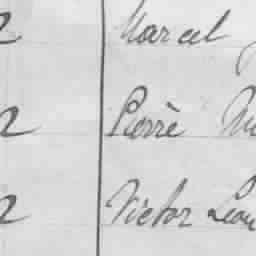 2 Marcel
2 Pierre
2 Victor Leon